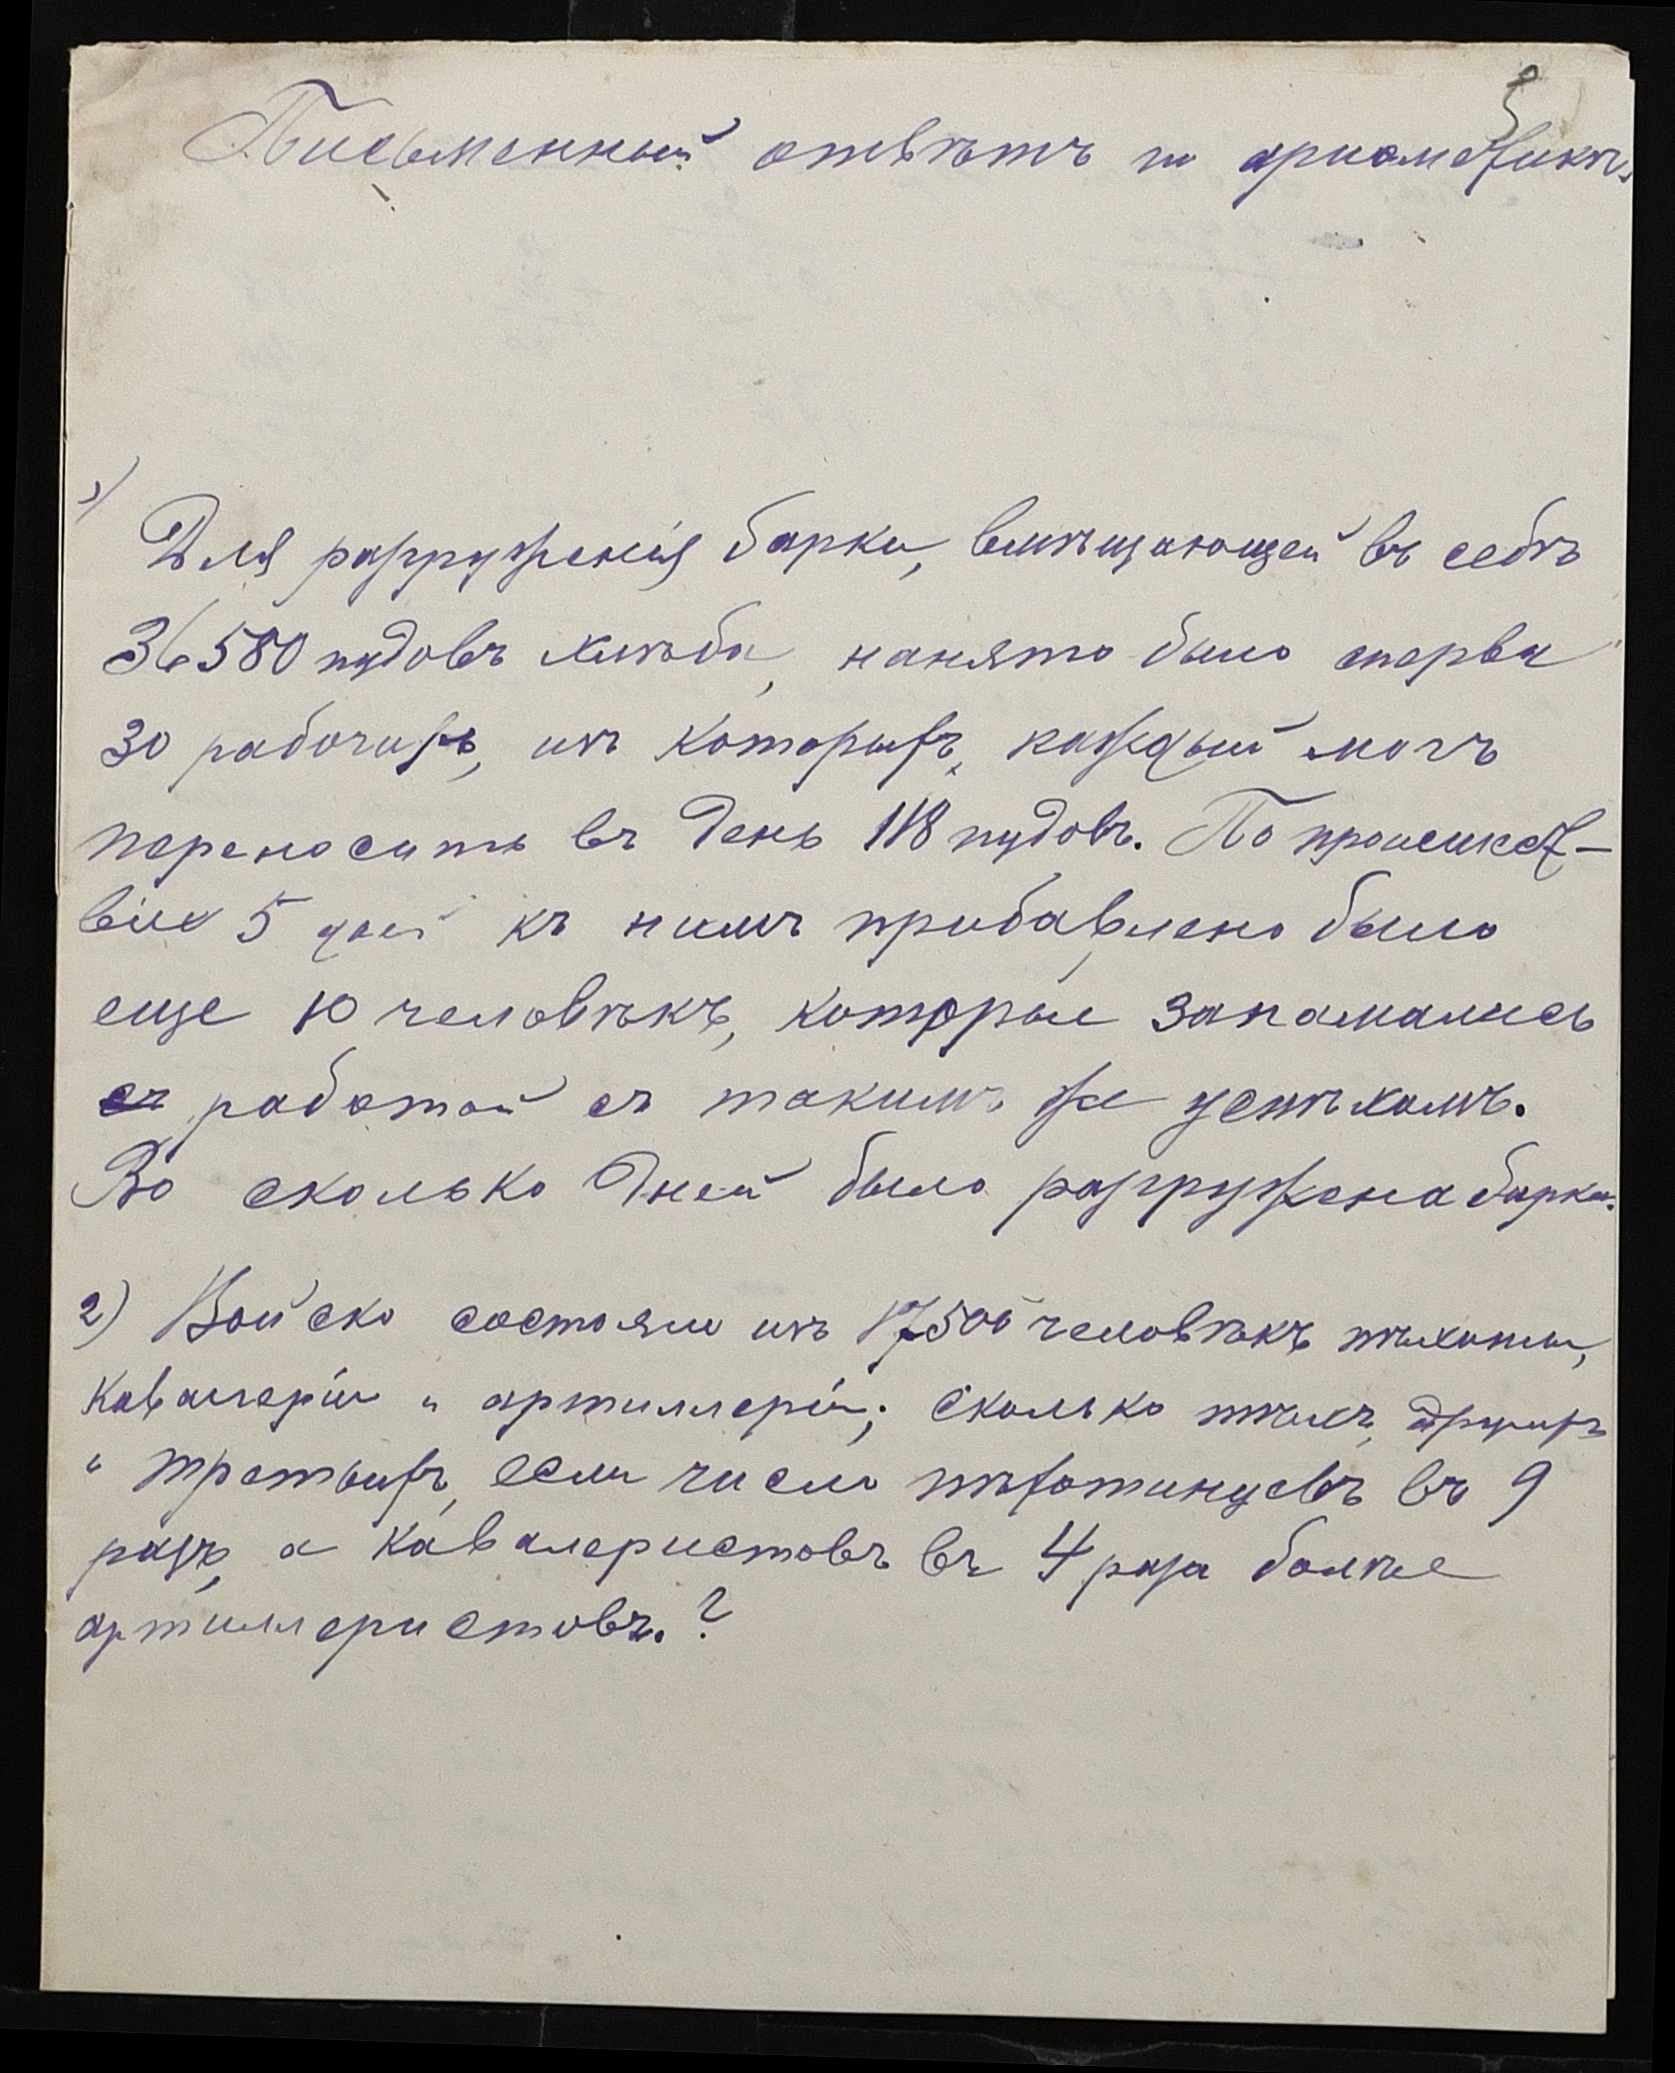 Письменный отвѣтъ по ариѳметикѣ.
1)
Для разгруженія барки, вмѣщающей въ себѣ
36580 пудовъ хлѣба, нанято было сперва
30 рабочихъ, изъ которыхъ каждый могъ
переносить въ день 118 пудовъ. По прошест-
віи 5 дней къ нимъ прибавлено было
еще 10 человѣкъ, которые занимались
съ работой съ такимъ же успѣхомъ.
Во сколько дней было разгружена барка.
2) Войско состояло изъ 17500 человѣкъ пѣхоты,
кавалеріи и артиллеріи; сколько тѣхъ, другихъ
и третьихъ, если число пѣхотинцевъ въ 9
разъ, а кавалеристовъ въ 4 раза болѣе
артиллеристовъ.?